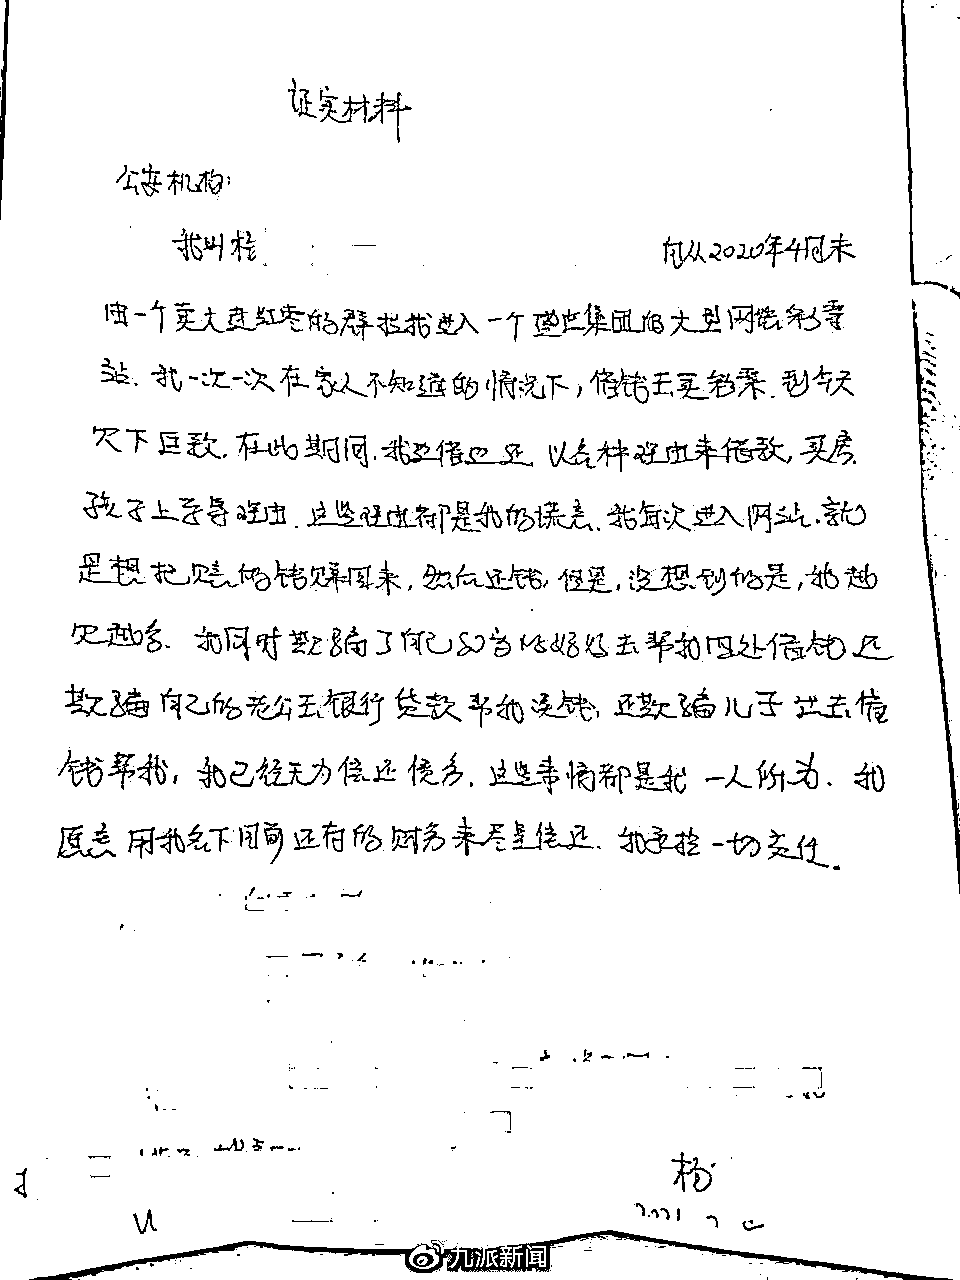 证实材料
公安机构:
我叫杨 自从2020年4月末
由一个卖大连红枣的群拉我进入一个盛世集团的大型网络彩票
站. 我一次一次在家人不知道的情况下, 借钱去买彩票. 到今天
欠下巨款. 在此期间. 我边借边还 以各种理由来借款, 买房.
孩子上学等理由. 这些理由都是我的谎言. 我每次进入网站. 就
是想把 的钱 回来, 然后还钱. 但是, 没想到的是, 我越
欠越多. 我同时欺骗了自己80岁 妈妈去帮我四处借钱 还
欺骗自己的老公去银行贷款帮我 钱, 还欺骗儿子 去借
钱帮我, 我已经无力偿还债务. 这些事情都是我 一人所为. 我
愿意用我名下 还存的财务来尽量偿还. 我承担一切责任.
杨
九派新闻